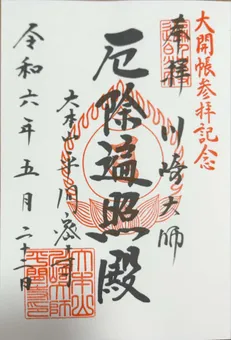 大開帳参拝記念
奉拝
川崎大師
厄除遍照殿
大本山平間寺
令和六年五月二十二日